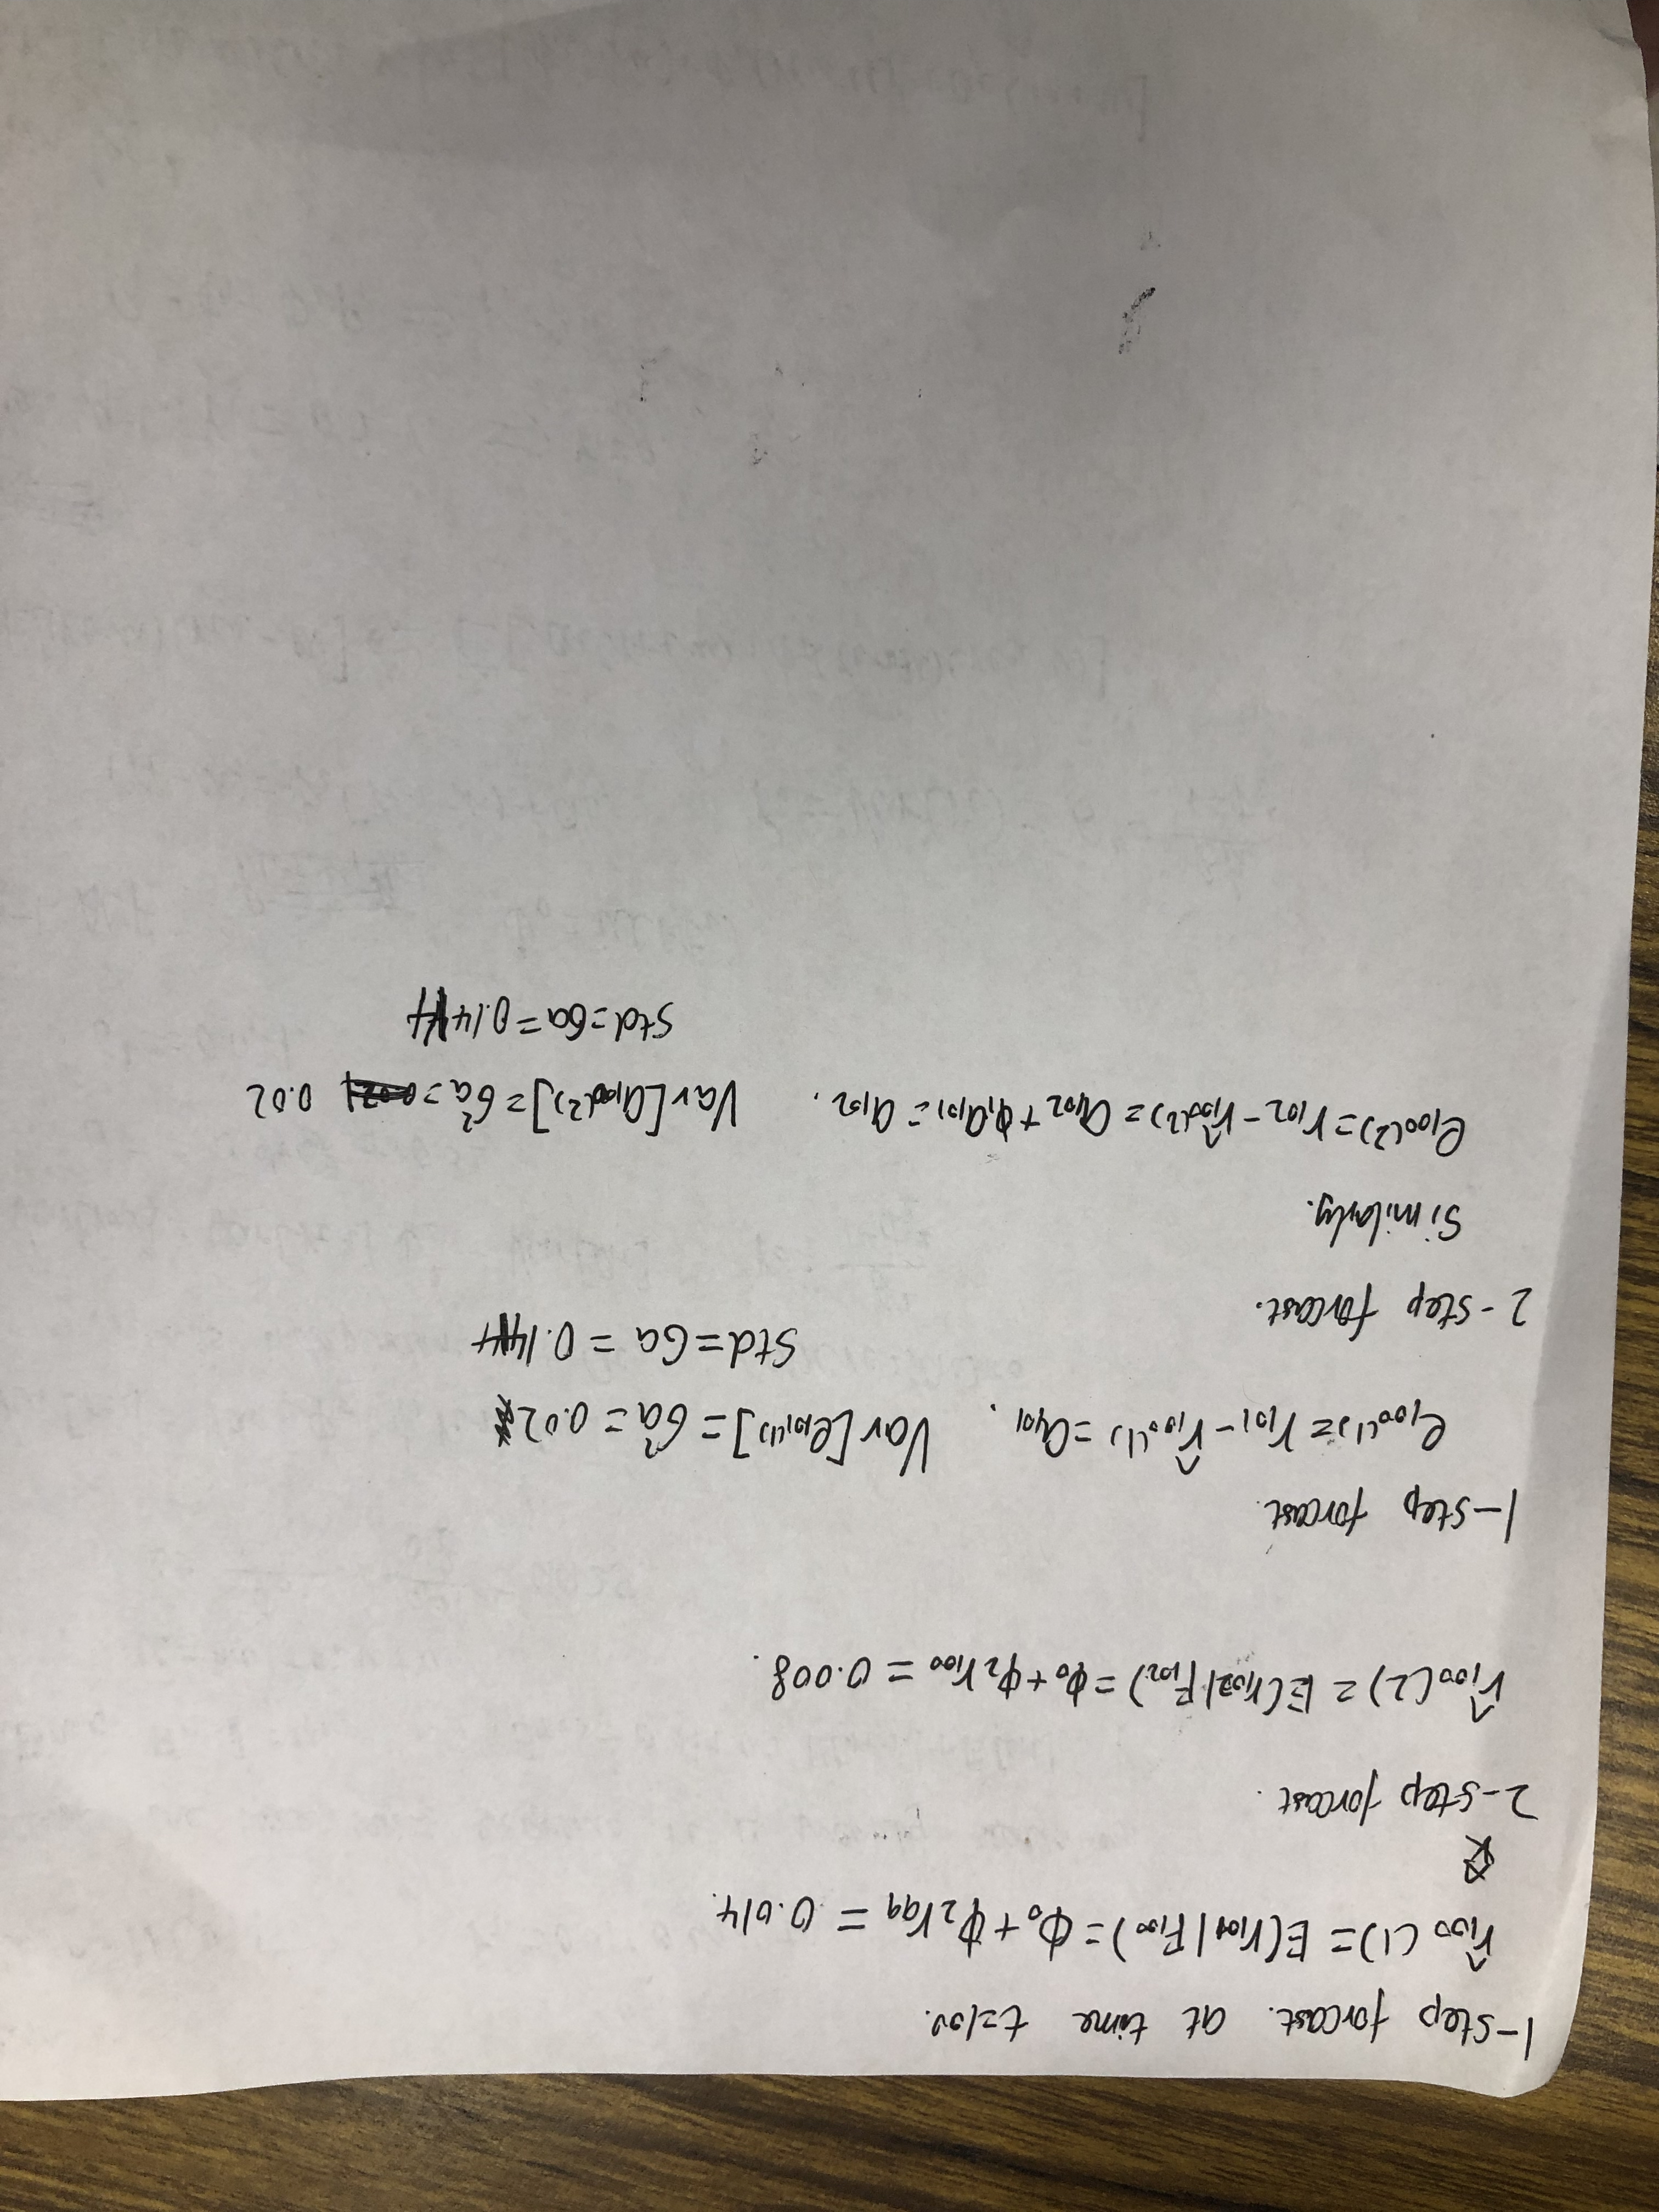 1-step forcast. at time t=100.
r̂₁₀₀(1) = E(r₁₀₁|F₁₀₀) = ϕ₀ + ϕ₂r₉₉ = 0.014.
2-step forcast.
r̂₁₀₀(2) = E(r₁₀₂|F₁₀₂) = ϕ₀ + ϕ₂r₁₀₀ = 0.008.
1-step forcast.
e₁₀₀(1) = r₁₀₁ - r̂₁₀₀(1) = a₁₀₁. Var[e₁₀₁(1)] = σ²a = 0.02
Std = σa = 0.14
2-step forcast.
Similarly.
e₁₀₀(2) = r₁₀₂ - r̂₁₀₀(2) = a₁₀₂ + ϕ₁a₁₀₁ = a₁₀₂. Var[a₁₀₀(2)] = σ²a = 0.02
Std = σa = 0.14